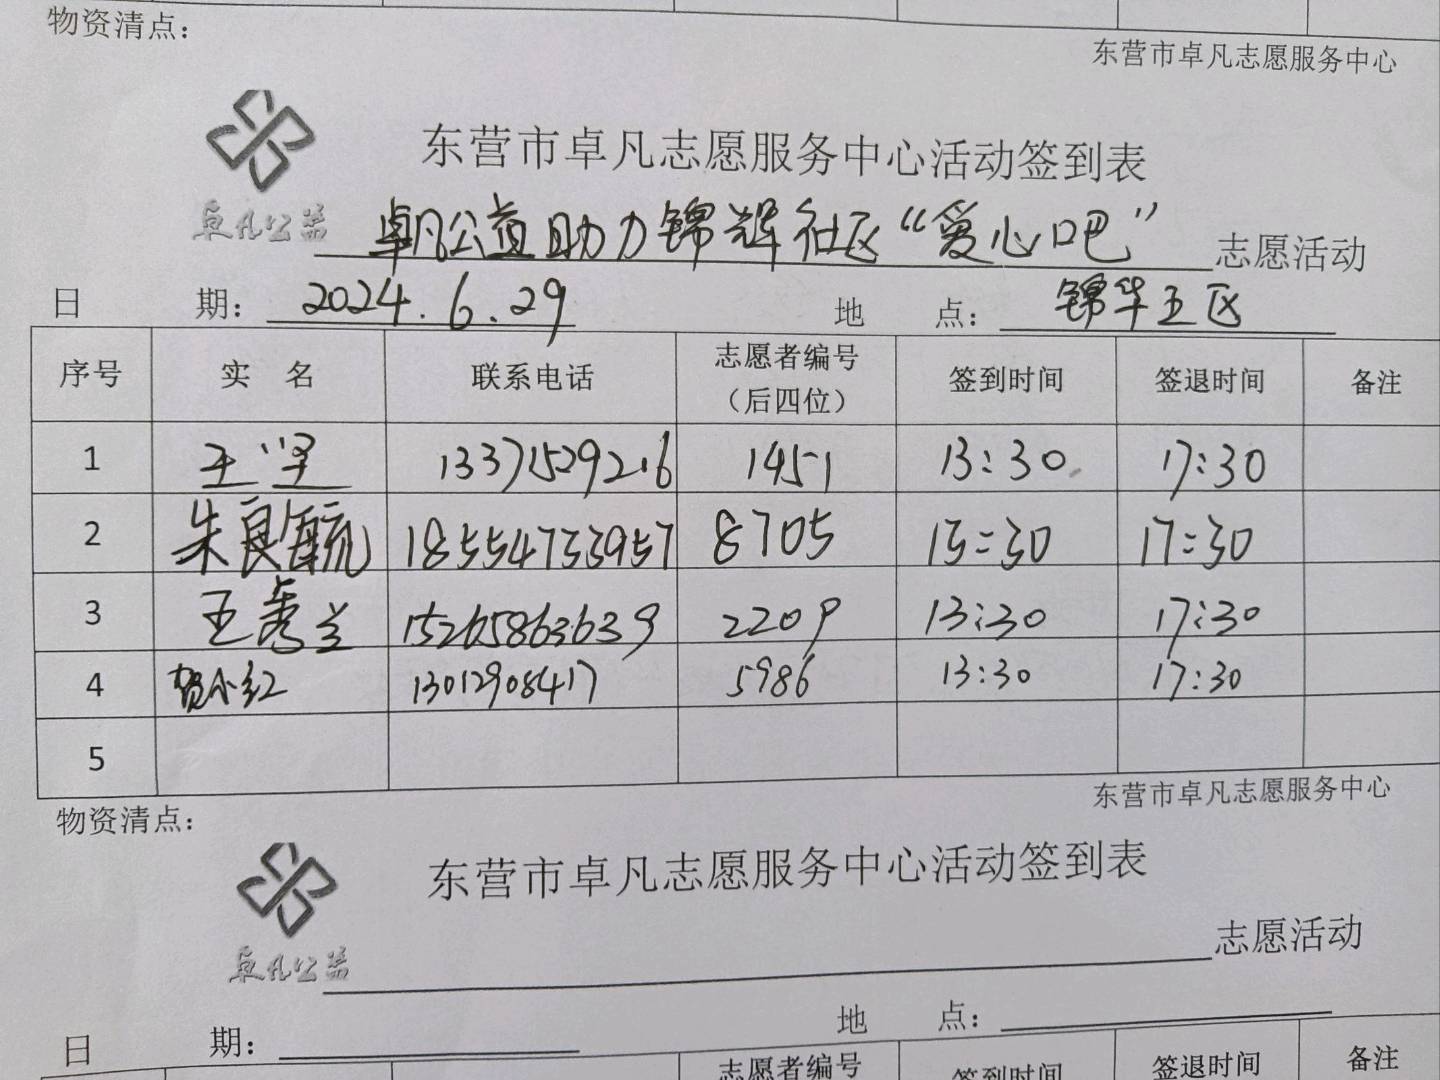 物资清点：
东营市卓凡志愿服务中心
东营市卓凡志愿服务中心活动签到表
卓凡公益
卓凡公益助力锦辉社区“爱心吧”志愿活动
日 期：2024.6.29 地 点：锦华五区
序号 实 名 联系电话 志愿者编号（后四位） 签到时间 签退时间 备注
1 王坚 13371529216 1451 13:30 17:30
2 朱良毓 18554733957 8705 13:30 17:30
3 王秀兰 15265863639 2209 13:30 17:30
4 贺小红 13012908417 5986 13:30 17:30
5
东营市卓凡志愿服务中心
物资清点：
东营市卓凡志愿服务中心活动签到表
卓凡公益
志愿活动
日 期： 地 点：
志愿者编号 签到时间 签退时间 备注